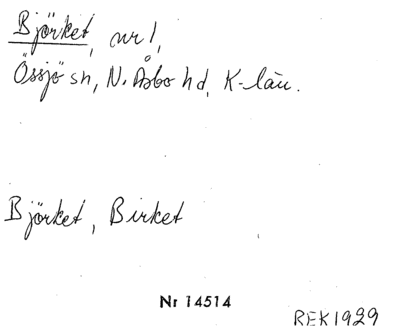 Björket, nr 1,
Össjö sn, N. Åsbo hd, K-län.
Björket, Birket
Nr 14514
REK 1929